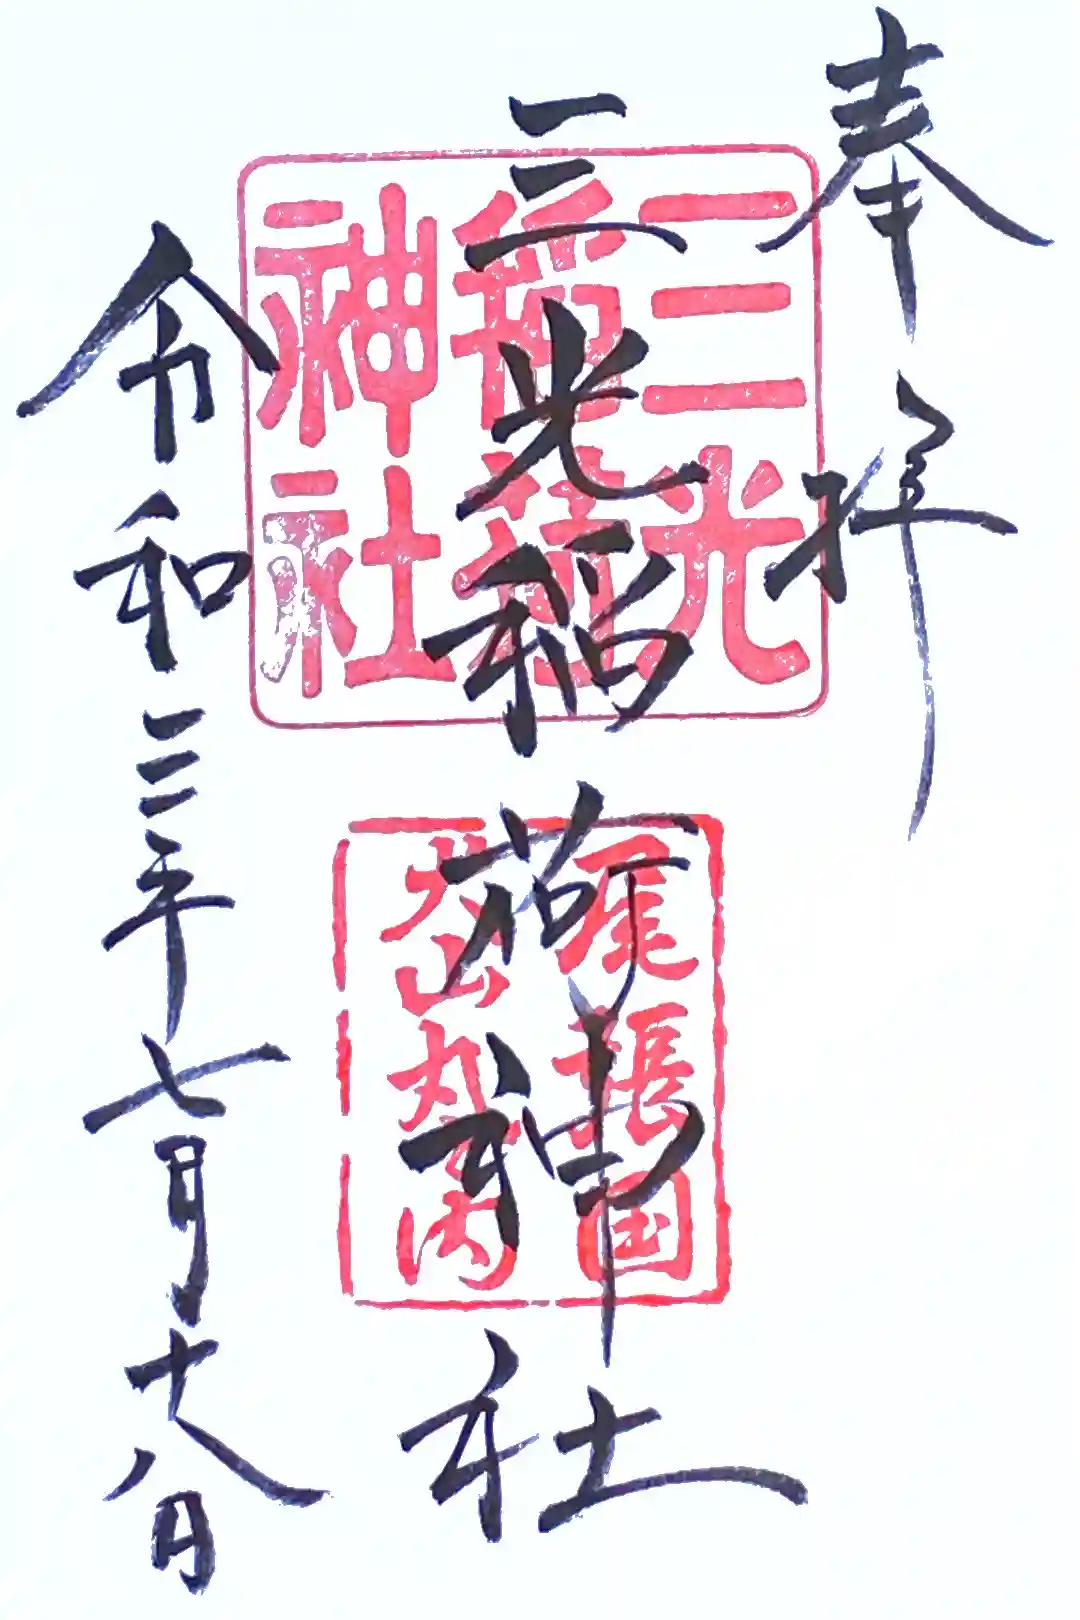 奉拝
三光稲荷神社
三光
稲荷
神社
尾張国
犬山丸之内
令和三年七月十八日